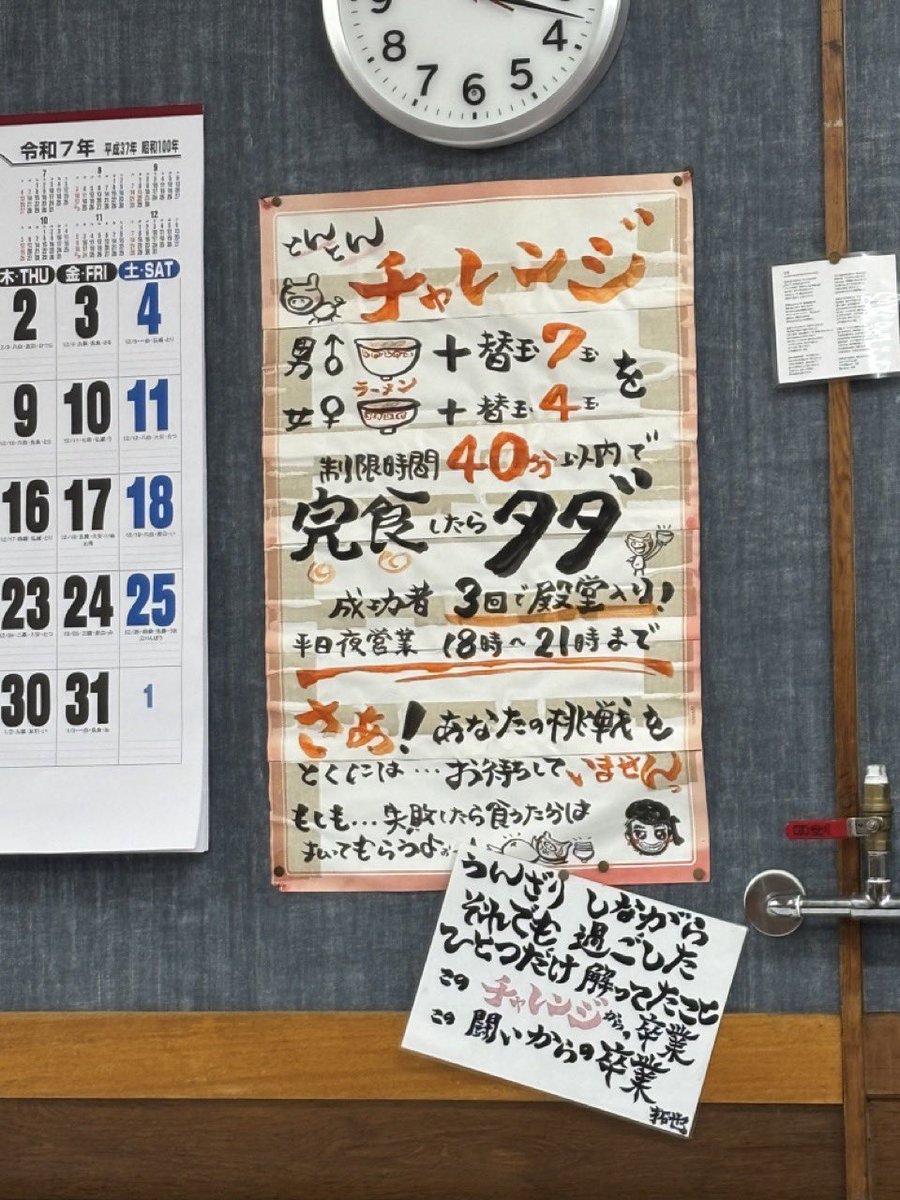 9
8
7
6
5
4
令和7年 平成37年 昭和100年
7 8 9
10 11 12
木・THU 金・FRI 土・SAT
2 3 4
9 10 11
16 17 18
23 24 25
30 31 1
とんとん
チャレンジ
男♂ + 替玉7玉を
ラーメン
女♀ + 替玉4玉
制限時間40分以内で
完食したらタダ
成功者 3回で殿堂入り!
平日夜営業 18時〜21時まで
さぁ!あなたの挑戦を
とくには…お待ちしていませんっ
もしも…失敗したら食った分は
払ってもらうよぉ〜
うんざりしながら
それでも過ごした
ひとつだけ解ってたこと
この チャレンジからの卒業
この 闘いからの卒業
拓也